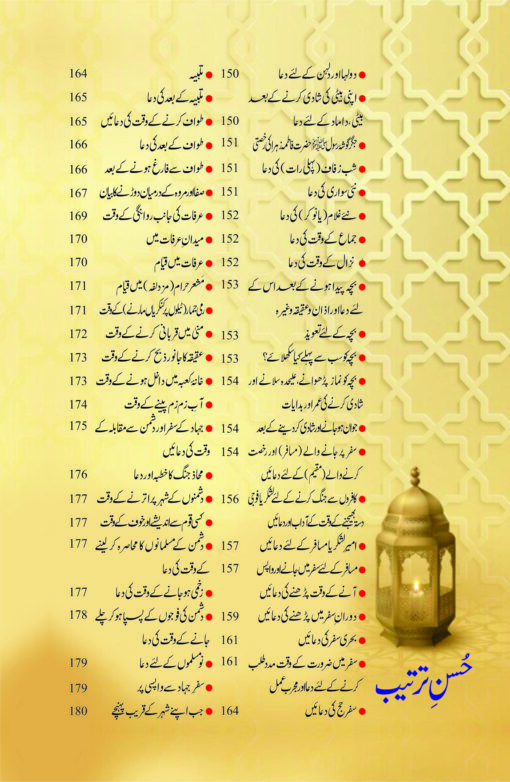 ● دولہا اور دلہن کے لئے دعا 150
● اپنی بیٹی کی شادی کرنے کے بعد
بیٹی، داماد کے لئے دعا 150
● جگر گوشہ رسول ﷺ حضرت فاطمہ زہرا کی رخصتی 151
● شب زفاف (پہلی رات) کی دعا 151
● نئی سواری کی دعا 151
● نئے غلام (یا نوکر) کی دعا 152
● جماع کے وقت کی دعا 152
● نزال کے وقت کی دعا 152
● بچہ پیدا ہونے کے بعد اس کے 153
لئے دعا اور اذان و عقیقہ وغیرہ
● بچہ کے لئے تعویذ 153
● بچہ کو سب سے پہلے کیا سکھلائے؟ 153
● بچہ کو نماز پڑھوانے، علیحدہ سلانے اور 154
شادی کرنے کی عمر اور ہدایات
● جوان ہو جانے اور شادی کر دینے کے بعد 154
● سفر پر جانے والے (مسافر) اور رخصت 154
کرنے والے (مقیم) کے لئے دعائیں
● کافروں سے جنگ کرنے کے لئے لشکر یا فوجی 156
دستہ بھیجنے کے وقت کے آداب اور دعائیں
● امیر لشکر یا مسافر کے لئے دعائیں 157
● مسافر کے لئے سفر میں جانے اور واپس 157
آنے کے وقت پڑھنے کی دعائیں
● دوران سفر میں پڑھنے کی دعائیں 159
● بحری سفر کی دعائیں 161
● سفر میں ضرورت کے وقت مدد طلب 161
کرنے کے لئے دعا اور مجرب عمل
● سفر حج کی دعائیں 164
● تلبیہ 164
● تلبیہ کے بعد کی دعا 165
● طواف کرنے کے وقت کی دعائیں 165
● طواف کے بعد کی دعا 166
● طواف سے فارغ ہونے کے بعد 166
● صفا اور مروہ کے درمیان دوڑنے کا بیان 167
● عرفات کی جانب روانگی کے وقت 169
● میدان عرفات میں 170
● عرفات میں قیام 170
● مشعر حرام (مزدلفہ) میں قیام 171
● رمی جمار (ٹیلوں پر کنکریاں مارنے) کے وقت 171
● منی میں قربانی کرنے کے وقت 172
● عقیقہ کا جانور ذبح کرنے کے وقت 173
● خانہ کعبہ میں داخل ہونے کے وقت 173
● آب زم زم پینے کے وقت 174
● جہاد کے سفر اور دشمن سے مقابلہ کے 175
وقت کی دعائیں
● محاذ جنگ کا خطبہ اور دعا 176
● دشمنوں کے شہر پر اترنے کے وقت 177
● کسی قوم سے اندیشے اور خوف کے وقت 177
● دشمن کے مسلمانوں کا محاصرہ کر لینے 177
کے وقت کی دعا
● زخمی ہو جانے کے وقت کی دعا 177
● دشمن کی فوجوں کے پسپا ہو کر چلے 178
جانے کے وقت کی دعا
● نو مسلموں کے لئے دعا 179
● سفر جہاد سے واپسی پر 179
● جب اپنے شہر کے قریب پہنچے 180
حُسنِ ترتیب